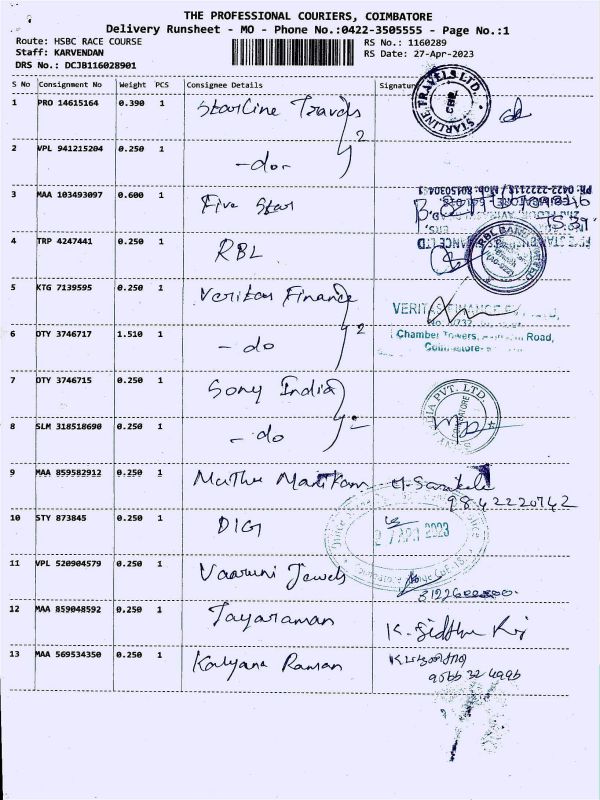 THE PROFESSIONAL COURIERS, COIMBATORE
Delivery Runsheet - MO - Phone No.:0422-3505555 - Page No.:1
Route: HSBC RACE COURSE RS No.: 1160289
Staff: KARVENDAN RS Date: 27-Apr-2023
DRS No.: DCJB116028901
S No Consignment No Weight PCS Consignee Details Signature
1 PRO 14615164 0.390 1 Starline Travels
STARLINE TRAVELS LTD. CBE
2 VPL 941215204 0.250 1 -do-
2
3 MAA 103493097 0.600 1 Five Star
PH: 0422-2222118 Mob: 80150304
4 TRP 4247441 0.250 1 RBL
RBL BANK LIMITED
5 KTG 7139595 0.250 1 Veritas Finance
VERITAS FINANCE PVT. LTD,
6 DTY 3746717 1.510 1 -do
2
Chamber Towers, Road,
Coimbatore-
7 DTY 3746715 0.250 1 Sony India
PVT. LTD. COIMBATORE
8 SLM 318518690 0.250 1 -do
9 MAA 859582912 0.250 1 Muthu Manikam
98422 20742
10 STY 873845 0.250 1 DIGI
27 APR 2023
11 VPL 520904579 0.250 1 Vaaruni Jewels
12 MAA 859048592 0.250 1 Jayaraman K. Sidthu Raj
13 MAA 569534350 0.250 1 Kalyana Raman
9566 32 4996